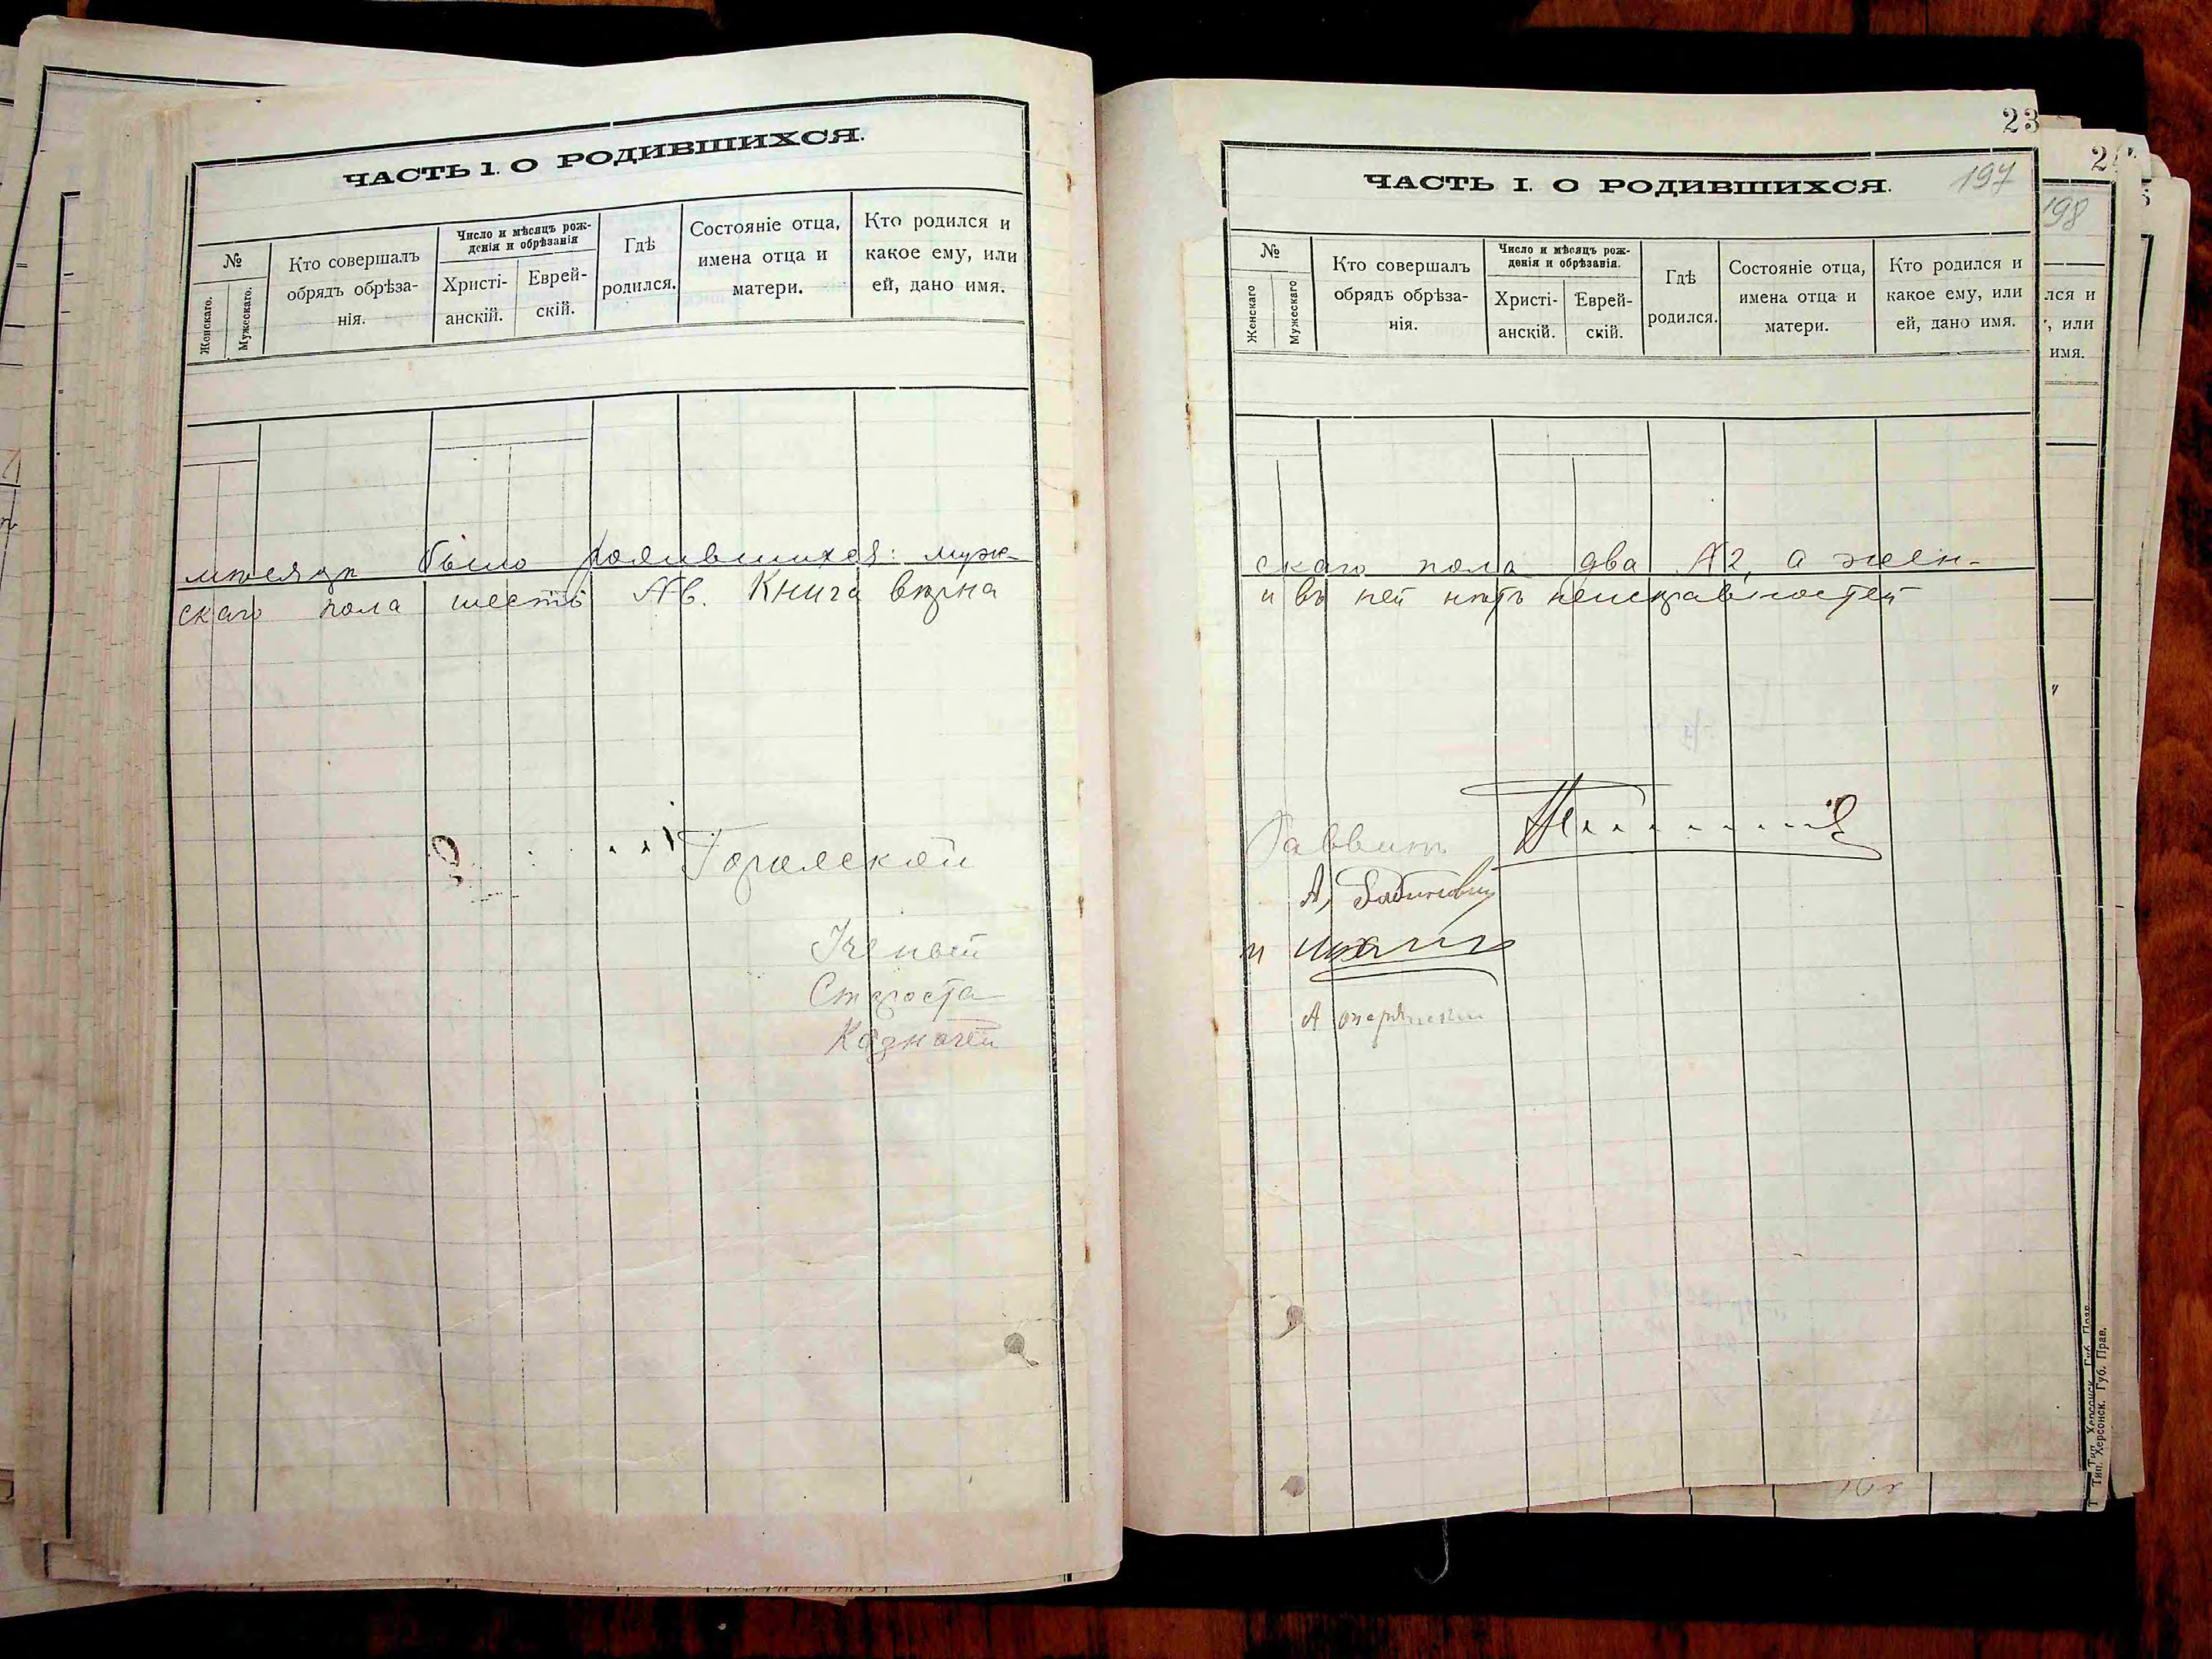 ЧАСТЬ 1. О РОДИВШИХСЯ.
№
Женскаго.
Мужескаго.
Кто совершалъ
обрядъ обрѣза-
нія.
Число и мѣсяцъ рож-
денія и обрѣзанія
Христі-
анскій.
Еврей-
скій.
Гдѣ
родился.
Состояніе отца,
имена отца и
матери.
Кто родился и
какое ему, или
ей, дано имя.
мѣсяцѣ было родившихся: муж-
скаго пола шесть №6. Книга вѣрна
Городской
Ученый
Староста
Казначей
23
197
ЧАСТЬ I. О РОДИВШИХСЯ.
№
Женскаго
Мужескаго
Кто совершалъ
обрядъ обрѣза-
нія.
Число и мѣсяцъ рож-
денія и обрѣзанія.
Христі-
анскій.
Еврей-
скій.
Гдѣ
родился.
Состояніе отца,
имена отца и
матери.
Кто родился и
какое ему, или
ей, дано имя.
скаго пола два №2, а жен-
и въ ней нѣтъ неисправностей
Раввинъ
А. Рабиновичъ
198
лся и
, или
имя.
Тип. Херсонск. Губ. Прав.